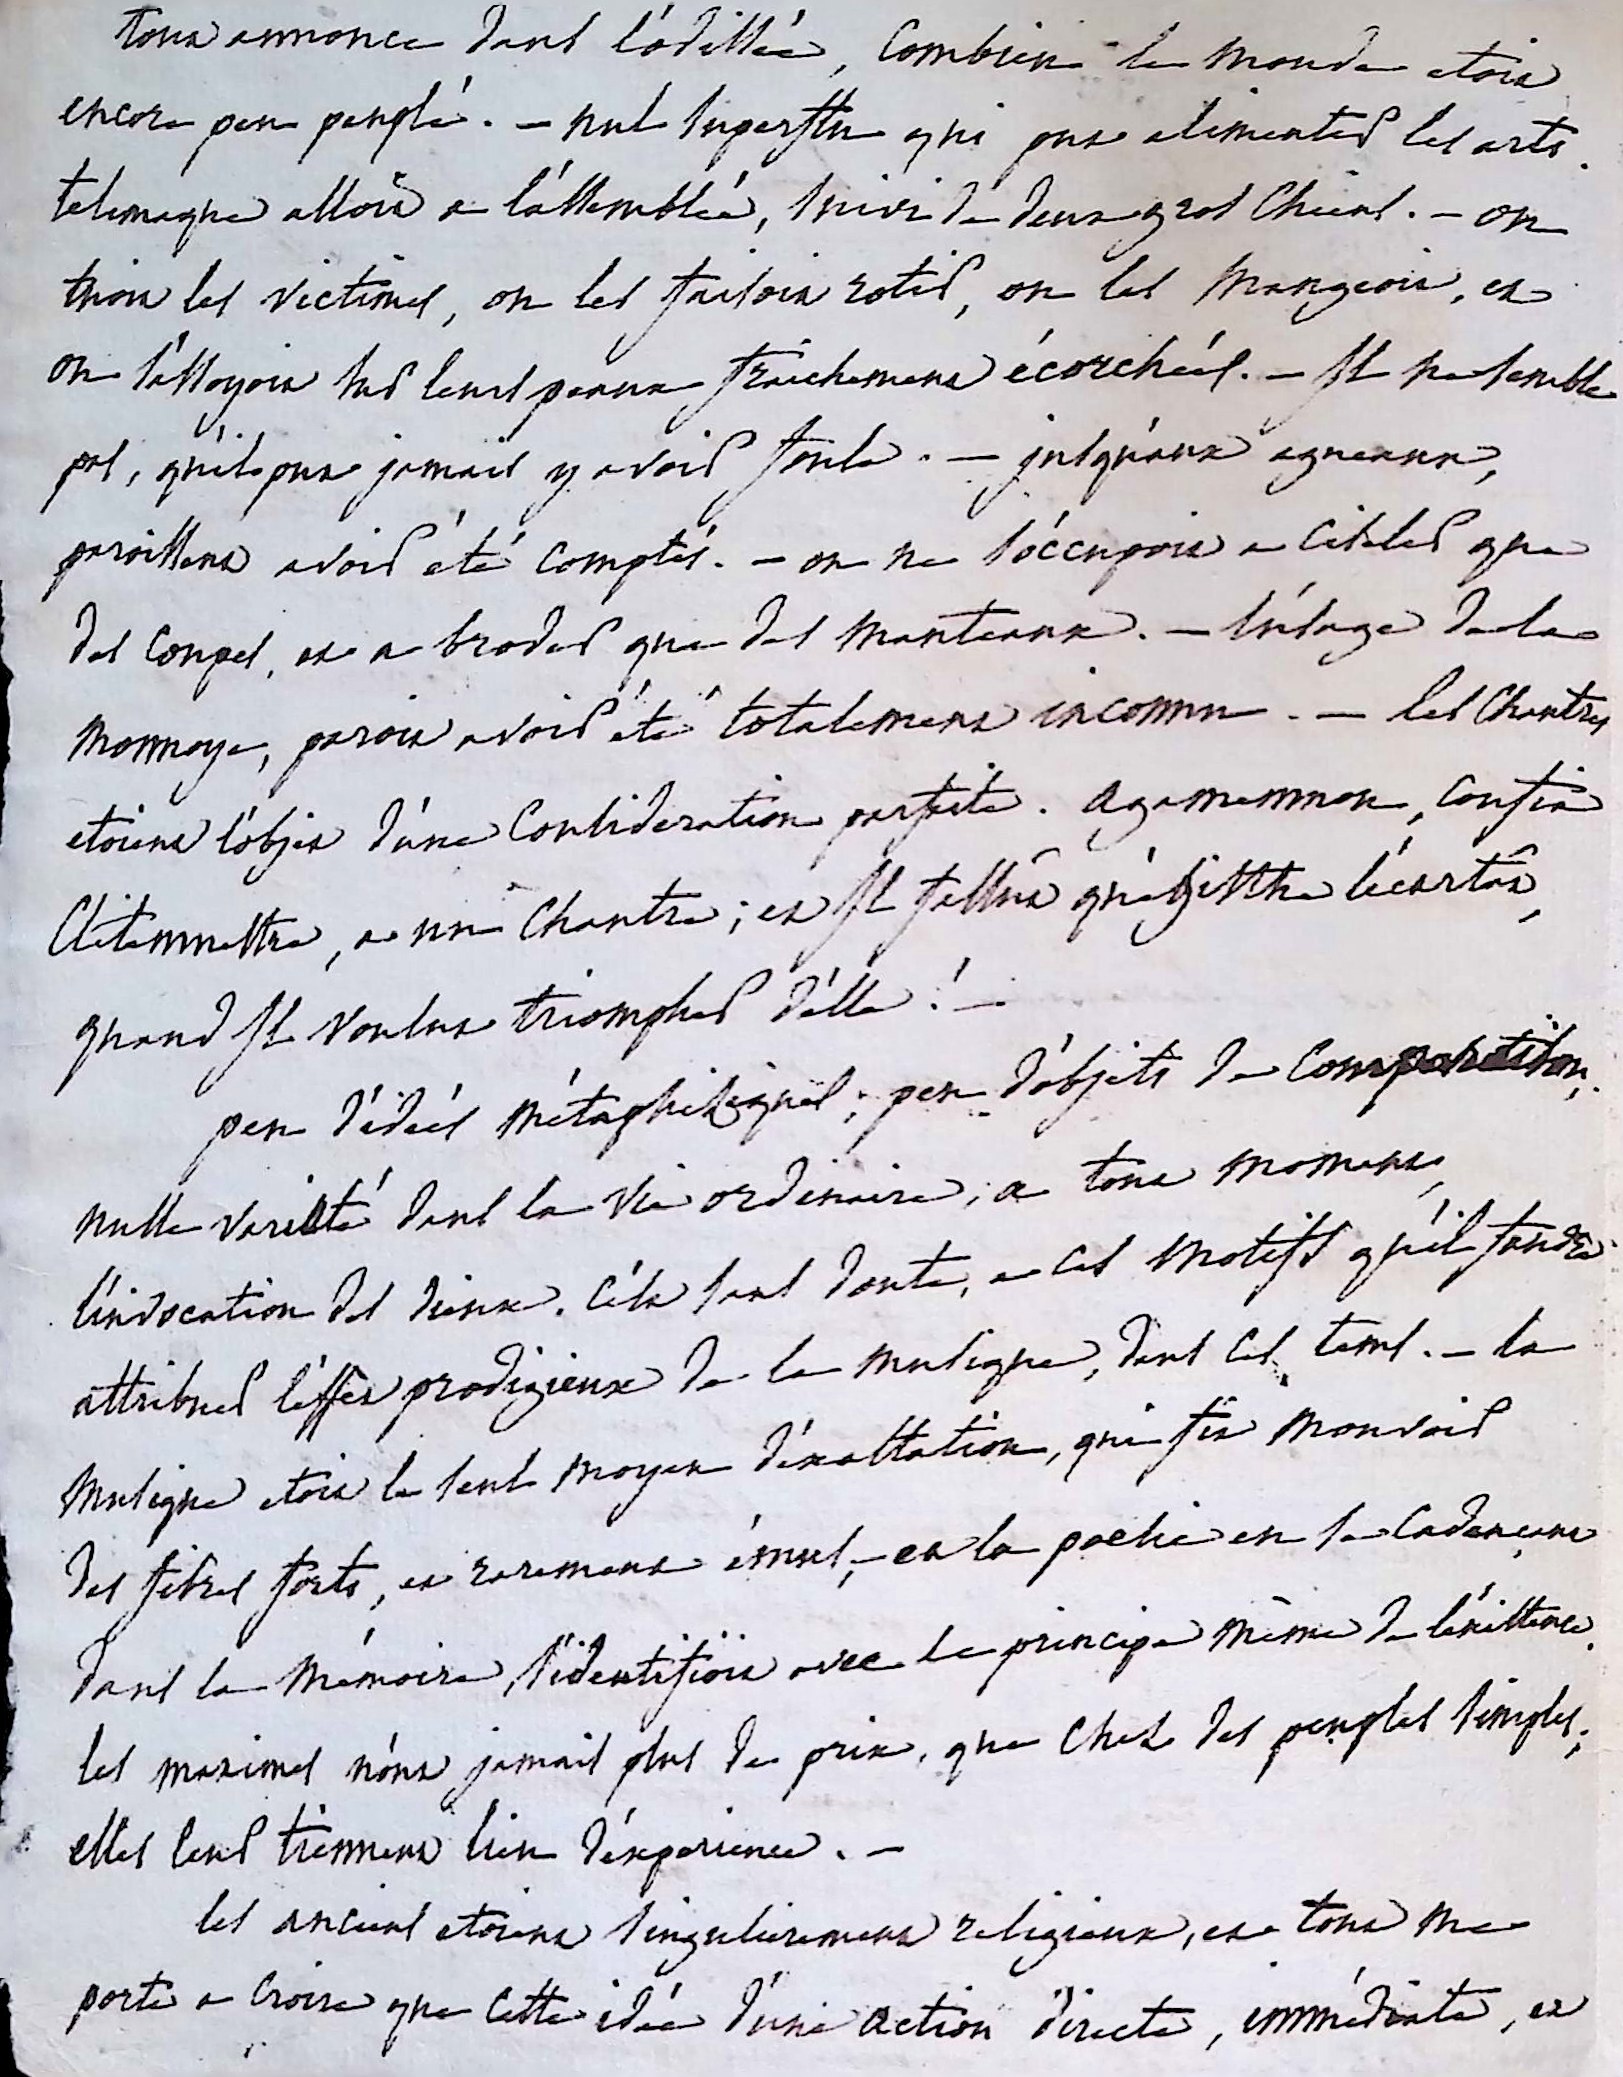 tout annonce dans l'odissée, combien le monde etoit
encore peu peuplé. – nul superflu qui put alimenter les arts.
telemaque alloit a l'assemblée, suivi de deux gros chiens. – on
tuoit les victimes, on les faisoit rotir, on les mangeoit, et
on s'assoyoit sur leurs peaux fraichement écorchées. – Il ne semble
pas, qu'il put jamais y avoir foule. – jusqu'aux agneaux,
paroissent avoir été comptés. – on ne s'occupoit a ciseler que
des coupes, et a broder que des manteaux. – l'usage de la
monnoye, paroit avoir été totalement inconnu. – les chantres
etoient l'objet d'une consideration parfaite. agamemnon, confia
Clitemnestre, a un chantre; et Il fallut qu'egisthe l'écartât,
quand Il voulut triompher d'elle! –
peu d'idées métaphisiques; peu d'objets de comparaison,
nulle variété dans la vie ordinaire; a tout moment,
l'invocation des dieux. c'est sans doute, a ces motifs qu'il faudra
attribuer l'effet prodigieux de la musique, dans ces tems. – la
musique etoit le seul moyen d'exaltation, qui fit mouvoir
des fibres forts, et rarement émus, – et la poesie en se cadençant
dans la mémoire, s'identifioit avec le principe même de l'existence.
les maximes n'ont jamais plus de prix, que chez des peuples simples;
elles leur tiennent lieu d'experience. –
les anciens etoient singulierement religieux, et tout me
porte a croire que cette idée d'une action directe, immédiate, et